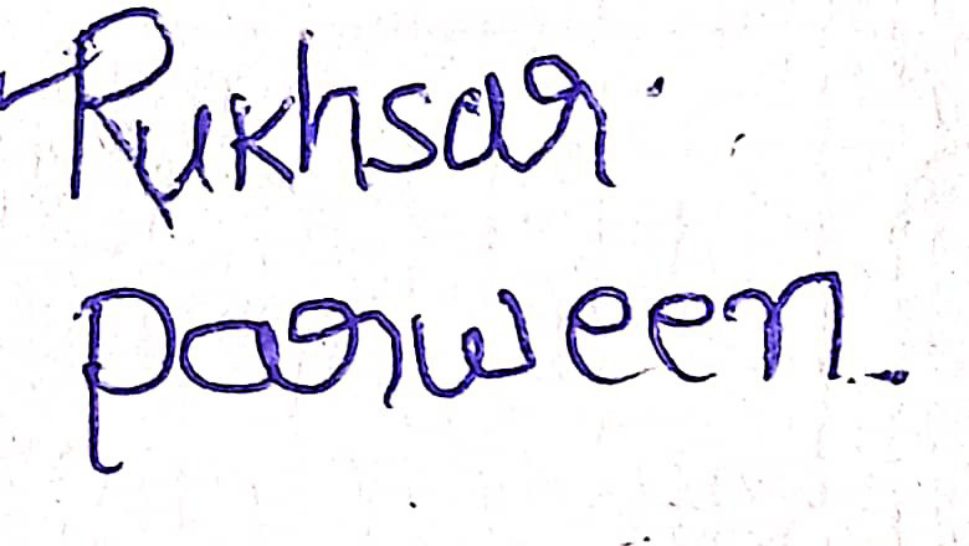 Rukhsar.
parween.